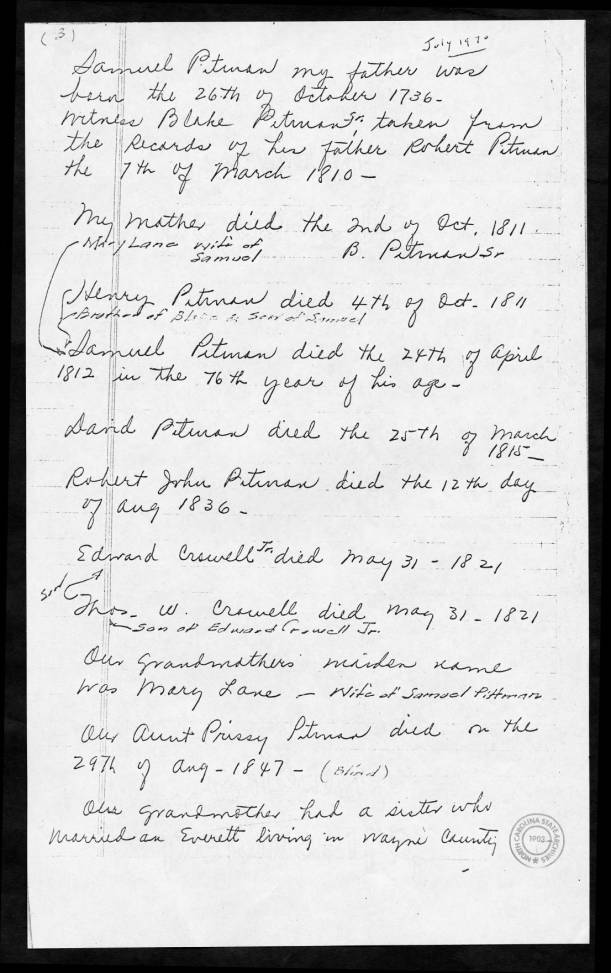 (3)
July 1970
Samuel Pitman my father was
born the 26th of October 1736-
Witness Blake Pitman Sr, taken from
the Records of his father Robert Pitman
the 7th of March 1810 -
My mother died the 2nd of Oct, 1811.
Mary Lane wife of
Samuel
B. Pitman Sr
Henry Pitman died 4th of Oct- 1811
Brother of Blake & Son of Samuel
Samuel Pitman died the 24th of April
1812 in the 76th year of his age -
David Pitman died the 25th of March
1815 -
Robert John Pitman died the 12th day
of Aug 1836 -
Edward Crowell Jr. died May 31 - 1821
Thos. W. Crowell died May 31 - 1821
Son of Edward Crowell Jr.
Our grandmothers maiden name
was Mary Lane - Wife of Samuel Pittman
Our Aunt Prissy Pitman died on the
29th of Aug - 1847 - (Blind)
Our grandmother had a sister who
married an Everett living in Wayne County
NORTH CAROLINA STATE ARCHIVES
1903